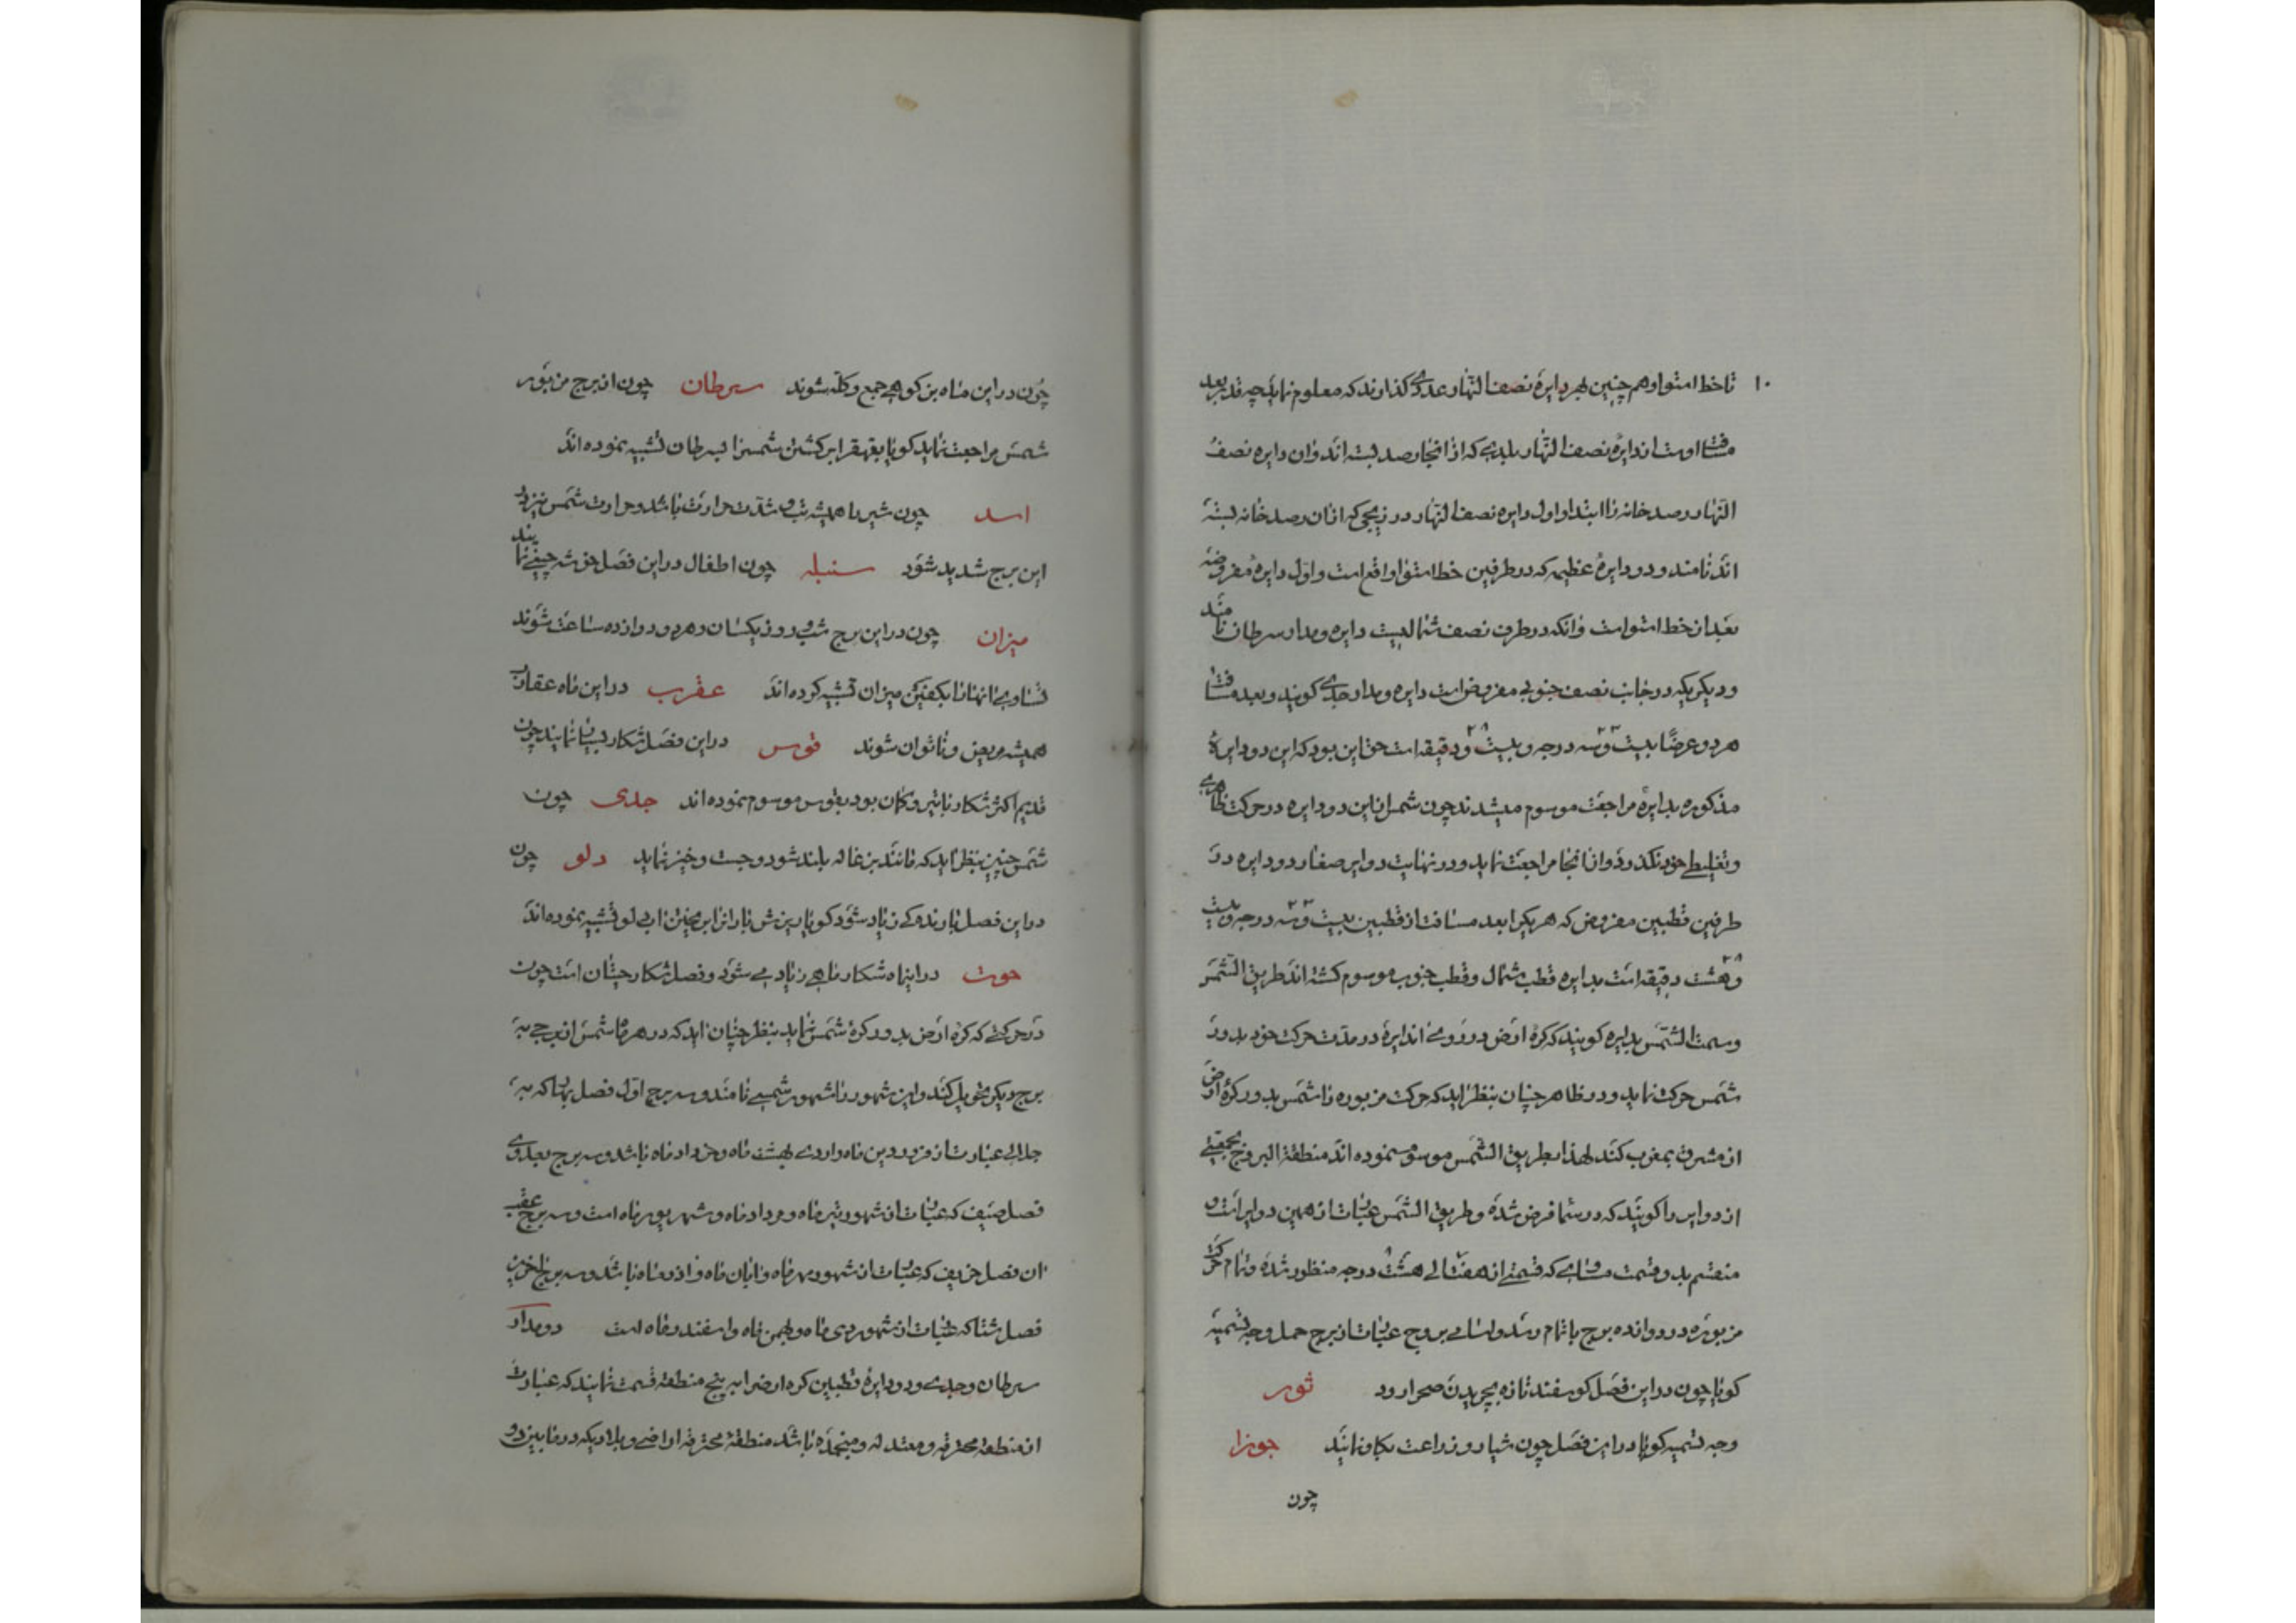 ۱۰ تا خط استوا و هم چنین بهر دایرهٔ نصف النّهار عددی گذارند که معلوم نماید چه قدر بعد
مسافت است از دایرهٔ نصف النّهار بلدیکه از انجا رصد بسته اند و ان دایره نصف
النّهار رصد خانه را ابتدا و اول دایره نصف النّهار در زیجی که از ان رصد خانه بسته
اند نامند و دو دایرهٔ عظیمه که در طرفین خط استوا واقع است و اول دایرهٔ مفروضه
بعد از خط استوا است و انکه در طرف نصف شمالیست دایره و مدار سرطان نامند
و دیگر یکه در جانب نصف جنوبی مفروض است دایره و مدار جدی گویند و بعد مسافت
هر دو عرضاً بیست و سه درجه و بیست و دقیقه است حق این بود که این دو دایرهٔ
مذکوره بدایرهٔ مراجعت موسوم میشدند چون شمس از این دو دایره در حرکت ظاهری
و تغلیطی خود نگذرد و از انجا مراجعت نماید و در نهایت دوایر صغار دو دایره در
طرفین قطبین مفروض که هر یکرا بعد مسافت از قطبین بیست و سه درجه و بیست
و هشت دقیقه است بدایره قطب شمال و قطب جنوب موسوم گشته اند طریق الشّمس
و سمت الشّمس بدایره گویند که کرهٔ ارض در روی ان دایره در مدّت حرکت خود بدور
شمس حرکت نماید و در ظاهر چنان بنظر اید که حرکت مزبوره را شمس بدور کرهٔ ارض
از مشرق بمغرب کند لهذا بطریق الشّمس موسوم نموده اند منطقة البروج بجمعی
از دوایر را گویند که در سما فرض شده و طریق الشّمس عبارت از همین دوایر است و
منقسم بدو قسمت مساوی که قسمتی از هفت الی هشت درجه منظور شده و تمام حرکت
مزبوره در دوازده برج باتمام رسد و اسامی بروج عبارت از برج حمل وجه تسمیه
گویا چون در این فصل گوسفند تازه بچریدن صحرا رود ثور
وجه تسمیه گویا در این فصل چون شیار و زراعت بگاو نمایند جوزا
چون
چون در این ماه بز کوهی جمع و گله شوند سرطان چون از برج مزبور
شمس مراجعت نماید گویا بقهقرا برگشتن شمسرا بسرطان تشبیه نموده اند
اسد چون شیر را همیشه تب و شدّت حرارت باشد و حرارت شمس نیز در
این برج شدید شود سنبله چون اطفال در این فصل خوشه چینی نمایند
میزان چون در این برج شب و روز یکسان و هر دو دوازده ساعت شوند
تساوی انهارا بکفتین میزان تشبیه کرده اند عقرب در این ماه عقارب
همیشه مریض و ناتوان شوند قوس در این فصل شکار بسیار نمایند چون
قدیم اکثر شکار با تیر و کمان بود بقوس موسوم نموده اند جدی چون
شمس چنین بنظر اید که مانند بزغاله بلند شود و جست و خیز نماید دلو چون
در این فصل بارندگی زیاد شود گویا ریزش باران از ابر بدلو تشبیه نموده اند
حوت در اینماه شکار ماهی زیاد می شود و فصل شکار حیتان است چون
در حرکتی که کره ارض بدور کرهٔ شمس نماید بنظر چنان اید که در هر ماه شمس از برجی به
برج دیگر تحویل کند و این شهور را شهور شمسی نامند و سه برج اوّل فصل بهار که به
جلالی عبارت از فروردین ماه و اردی بهشت ماه و خرداد ماه باشد و سه برج بعدی
فصل صیف که عبارت از شهور تیر ماه و مرداد ماه و شهریور ماه است و سه برج عقب
ان فصل خریف که عبارت از شهور مهر ماه و ابان ماه و اذر ماه باشد و سه برج اخرین
فصل شتا که عبارت از شهور دی ماه و بهمن ماه و اسفند ماه است دو مدار
سرطان و جدی و دو دایرهٔ قطبین کره ارض را به پنج منطقه قسمت نمایند که عبارت
از منطقه محترقه و معتدله و منجمده باشد منطقهٔ محترقه اراضی و بلادیکه در مابین دو